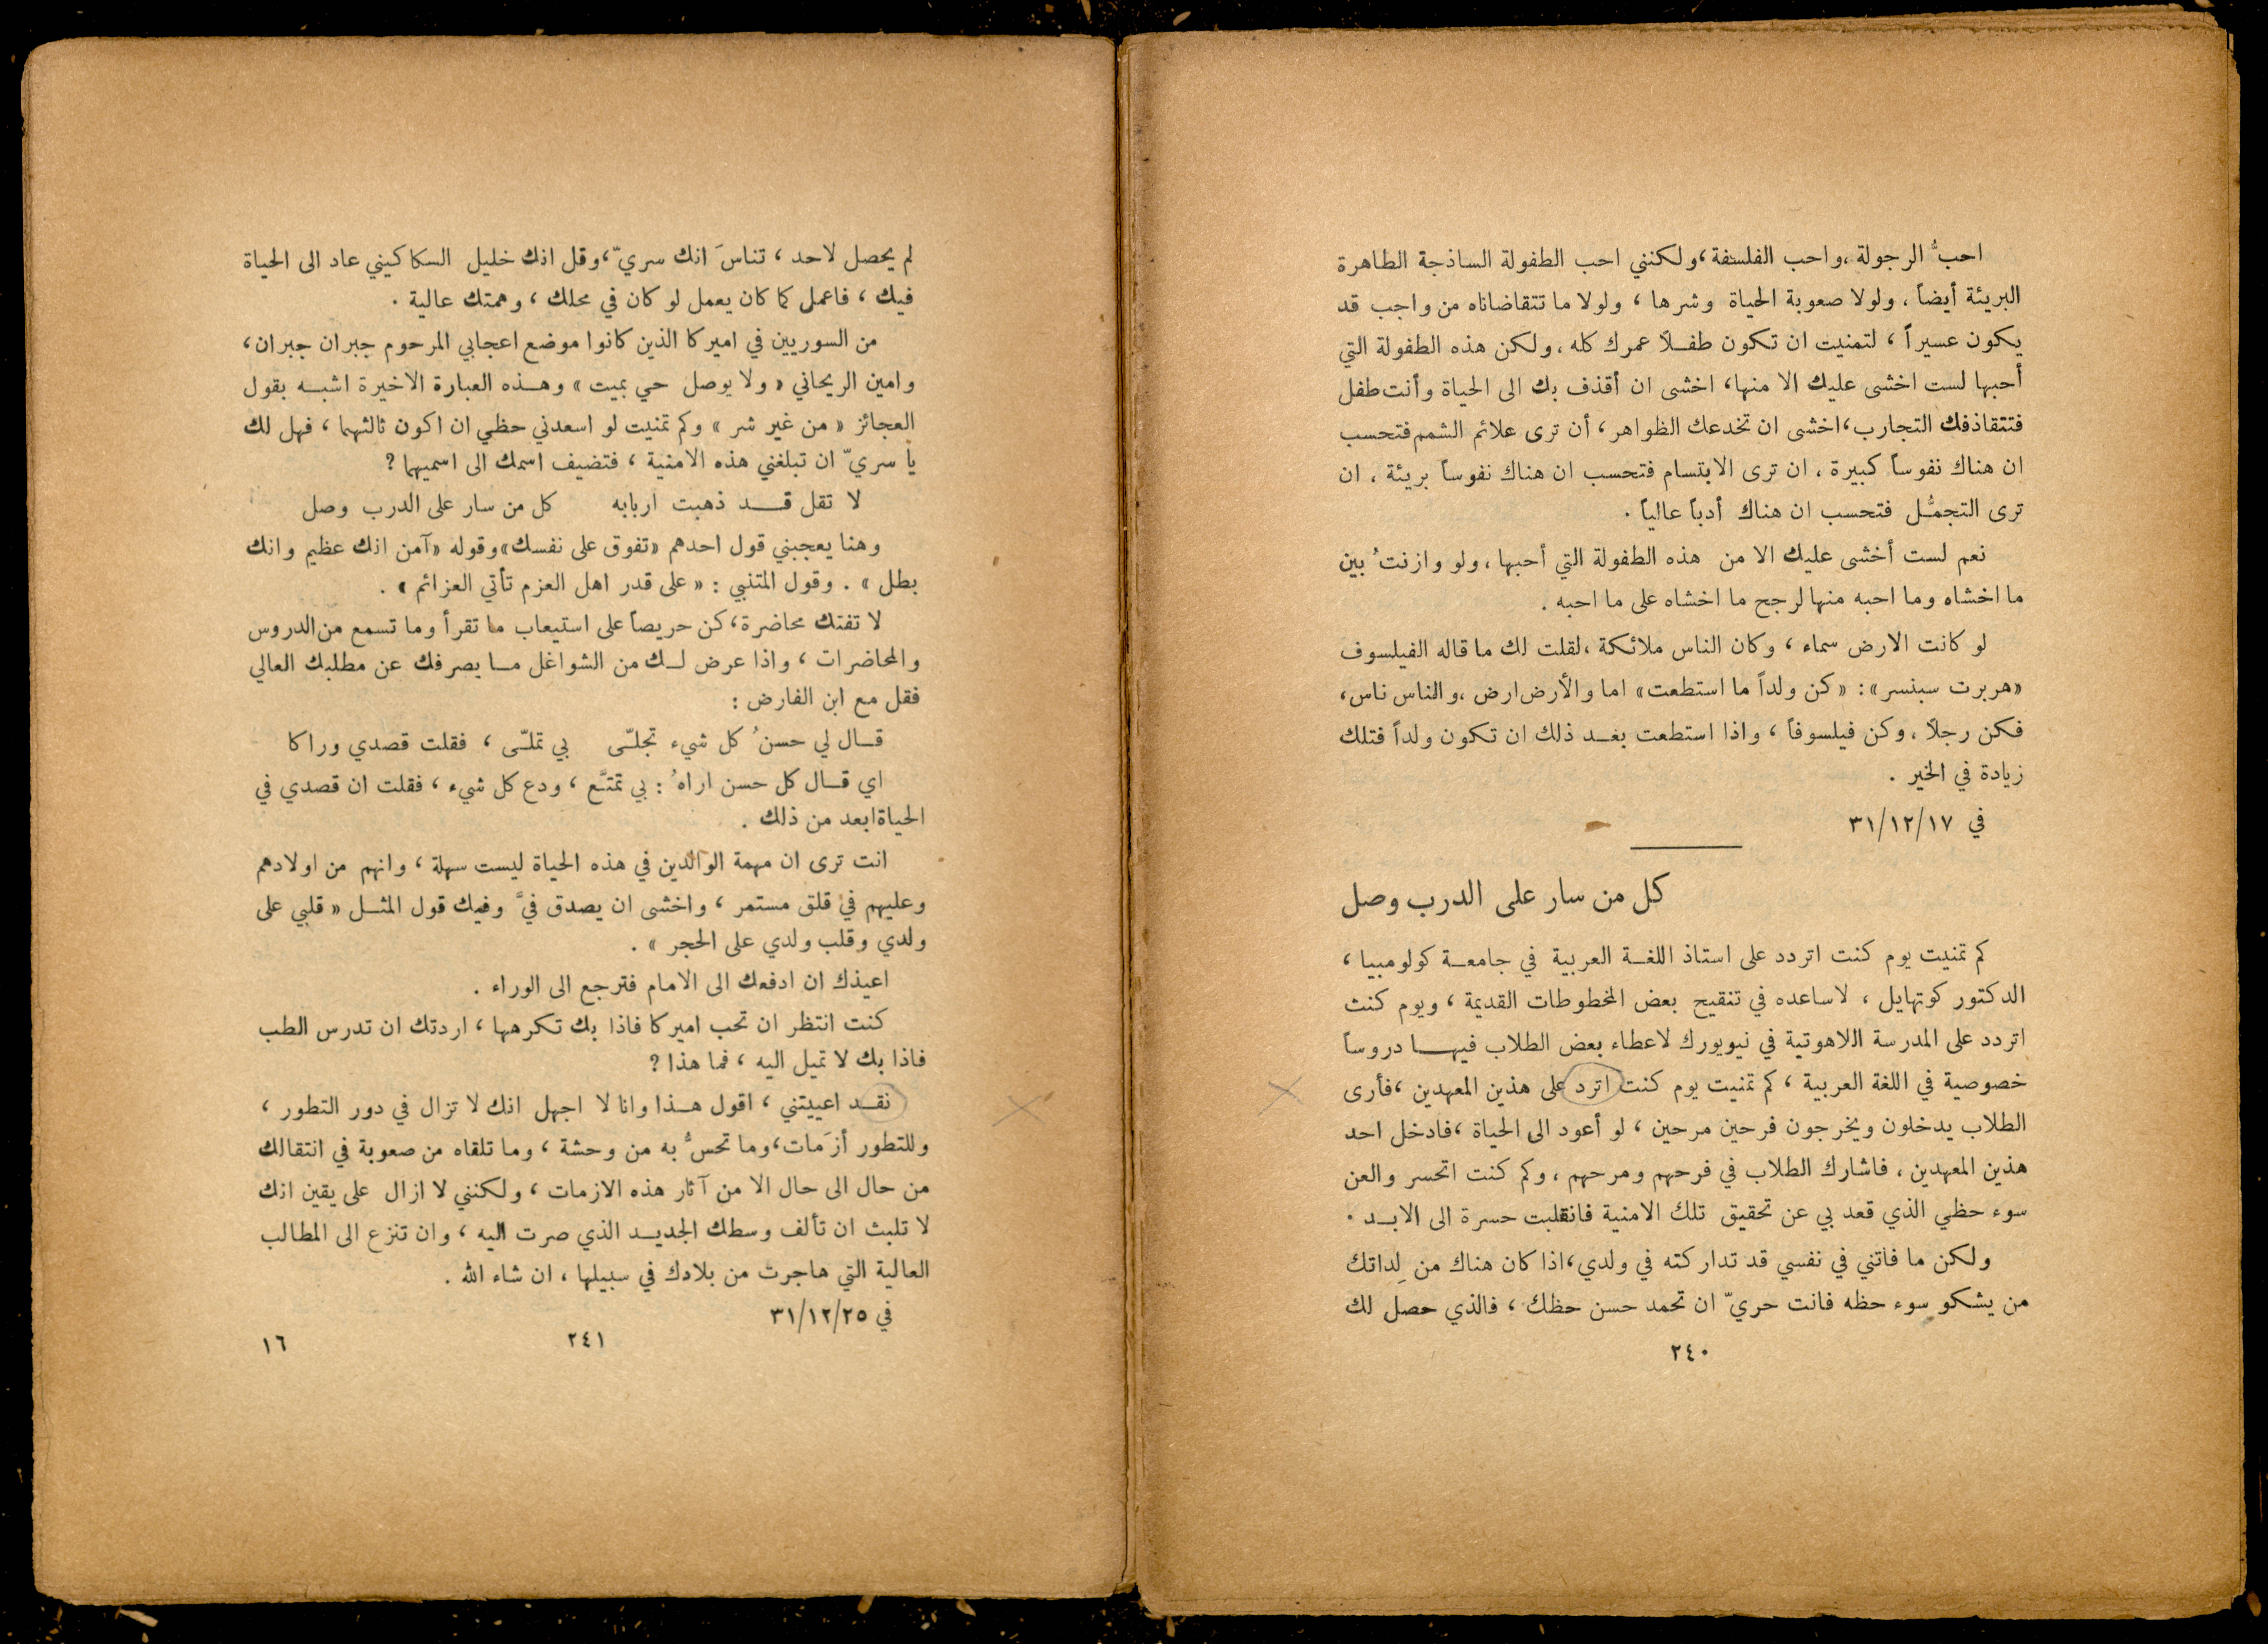 احبُّ الرجولة ، واحب الفلسفة ، ولكنني احب الطفولة الساذجة الطاهرة
البريئة أيضاً ، ولولا صعوبة الحياة وشرها ، ولولا ما تتقاضاناه من واجب قد
يكون عسيراً ، لتمنيت ان تكون طفلاً عمرك كله ، ولكن هذه الطفولة التي
أحبها لست اخشى عليك الا منها ، اخشى ان أقذف بك الى الحياة وأنت طفل
فتتقاذفك التجارب ، اخشى ان تخدعك الظواهر ، أن ترى علائم الشمم فتحسب
ان هناك نفوساً كبيرة ، ان ترى الابتسام فتحسب ان هناك نفوساً بريئة ، ان
ترى التجمُّل فتحسب ان هناك أدباً عالياً .
نعم لست أخشى عليك الا من هذه الطفولة التي أحبها ، ولو وازنتُ بين
ما اخشاه وما احبه منها لرجح ما اخشاه على ما احبه .
لو كانت الارض سماء ، وكان الناس ملائكة ، لقلت لك ما قاله الفيلسوف
«هربرت سبنسر» : « كن ولداً ما استطعت» اما والأرض ارض ، والناس ناس ،
فكن رجلاً ، وكن فيلسوفاً ، واذا استطعت بعد ذلك ان تكون ولداً فتلك
زيادة في الخير .
في ٣١/١٢/١٧
كل من سار على الدرب وصل
كم تمنيت يوم كنت اتردد على استاذ اللغة العربية في جامعة كولومبيا ،
الدكتور كوتهايل ، لاساعده في تنقيح بعض المخطوطات القديمة ، ويوم كنت
اتردد على المدرسة اللاهوتية في نيويورك لاعطاء بعض الطلاب فيها دروساً
خصوصية في اللغة العربية ، كم تمنيت يوم كنت اترد على هذين المعهدين ، فأرى
الطلاب يدخلون ويخرجون فرحين مرحين ، لو أعود الى الحياة ، فادخل احد
هذين المعهدين ، فاشارك الطلاب في فرحهم ومرحهم ، وكم كنت اتحسر والعن
سوء حظي الذي قعد بي عن تحقيق تلك الامنية فانقلبت حسرة الى الابد .
ولكن ما فاتني في نفسي قد تداركته في ولدي ، اذا كان هناك من لِداتك
من يشكو سوء حظه فانت حريّ ان تحمد حسن حظك ، فالذي حصل لك
٢٤٠
لم يحصل لاحد ، تناسَ انك سريّ ، وقل انك خليل السكاكيني عاد الى الحياة
فيك ، فاعمل كما كان يعمل لو كان في محلك ، وهمتك عالية .
من السوريين في اميركا الذين كانوا موضع اعجابي المرحوم جبران جبران ،
وامين الريحاني « ولا يوصل حي بميت » وهذه العبارة الاخيرة اشبه بقول
العجائز « من غير شر » وكم تمنيت لو اسعدني حظي ان اكون ثالثهما ، فهل لك
يا سريّ ان تبلغني هذه الامنية ، فتضيف اسمك الى اسميهما ?
لا تقل قد ذهبت اربابه كل من سار على الدرب وصل
وهنا يعجبني قول احدهم «تفوق على نفسك» وقوله «آمن انك عظيم وانك
بطل » . وقول المتنبي : « على قدر اهل العزم تأتي العزائم » .
لا تفتك محاضرة ، كن حريصاً على استيعاب ما تقرأ وما تسمع من الدروس
والمحاضرات ، واذا عرض لك من الشواغل ما يصرفك عن مطلبك العالي
فقل مع ابن الفارض :
قال لي حسنُ كل شيء تجلّى بي تملّى ، فقلت قصدي وراكا
اي قال كل حسن اراهُ : بي تمتَّع ، ودع كل شيء ، فقلت ان قصدي في
الحياة ابعد من ذلك .
انت ترى ان مهمة الوالدين في هذه الحياة ليست سهلة ، وانهم من اولادهم
وعليهم في قلق مستمر ، واخشى ان يصدق فيَّ وفيك قول المثل « قلبي على
ولدي وقلب ولدي على الحجر » .
اعيذك ان ادفعك الى الامام فترجع الى الوراء .
كنت انتظر ان تحب اميركا فاذا بك تكرهها ، اردتك ان تدرس الطب
فاذا بك لا تميل اليه ، فما هذا ?
نقد اعييتني ، اقول هذا وانا لا اجهل انك لا تزال في دور التطور ،
وللتطور أزَمات ، وما تحسُّ به من وحشة ، وما تلقاه من صعوبة في انتقالك
من حال الى حال الا من آثار هذه الازمات ، ولكنني لا ازال على يقين انك
لا تلبث ان تألف وسطك الجديد الذي صرت اليه ، وان تنزع الى المطالب
العالية التي هاجرت من بلادك في سبيلها ، ان شاء الله .
في ٣١/١٢/٢٥
٢٤١
١٦